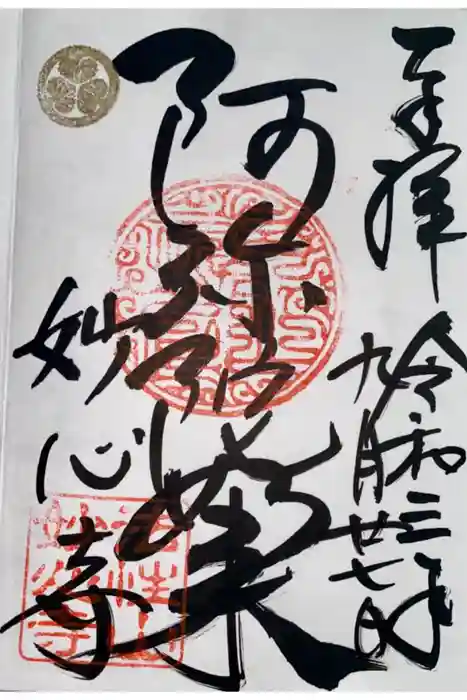 奉拝
令和三年
九月廿七日
阿弥陀如来
妙心寺
妙心寺